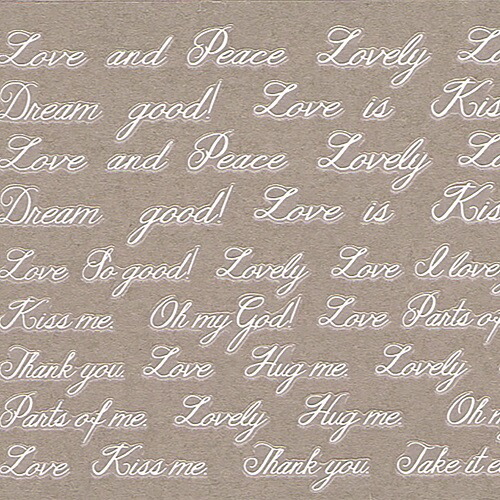 Love and Peace Lovely L
Dream good! Love is Kis
Love and Peace Lovely L
Dream good! Love is Kis
Love So good! Lovely Love I love
Kiss me. Oh my God! Love Parts of
Thank you. Love Hug me. Lovely
Parts of me. Lovely Hug me. Oh m
Love Kiss me. Thank you. Take it e